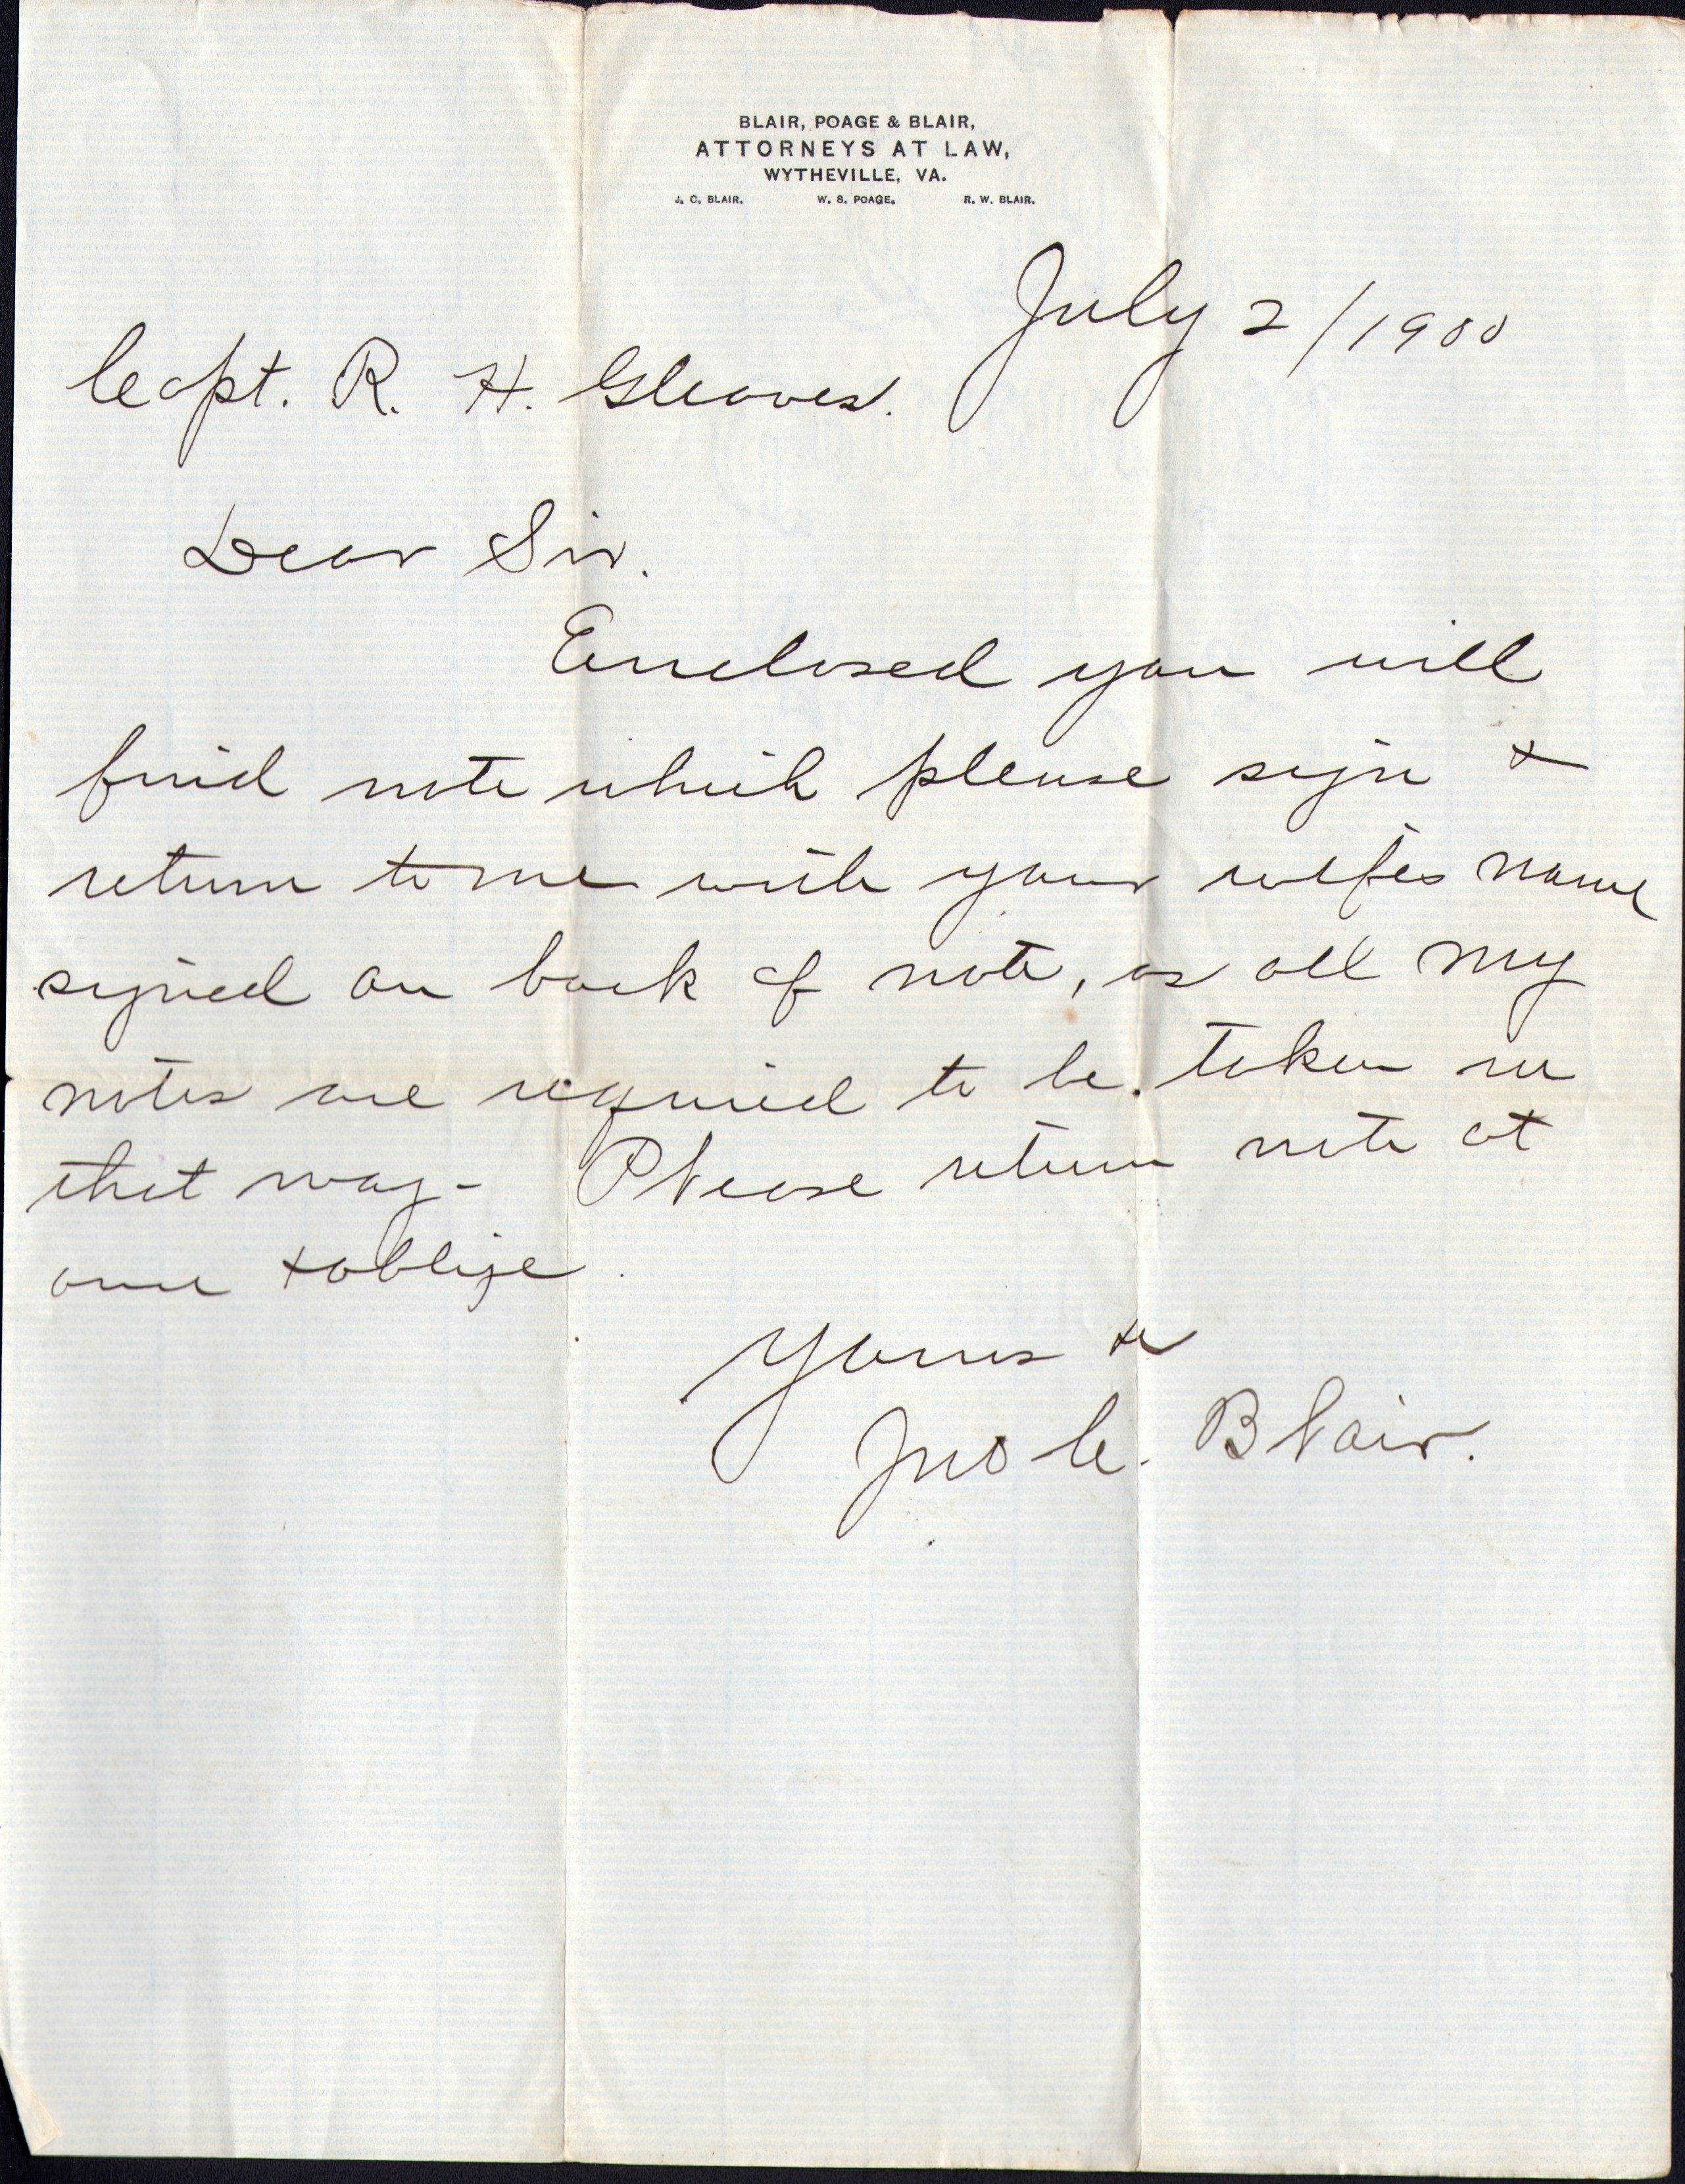 BLAIR, POAGE & BLAIR,
ATTORNEYS AT LAW,
WYTHEVILLE, VA.
J. C. BLAIR. W. S. POAGE. R. W. BLAIR.
July 2/1900
Capt. R. H. Gleaves.
Dear Sir.
Enclosed you will
find note which please sign &
return to me with your wifes name
signed on back of note, as all my
notes are required to be taken in
that way - Please return note at
once & oblige.
Yours &c
Jno C. Blair.